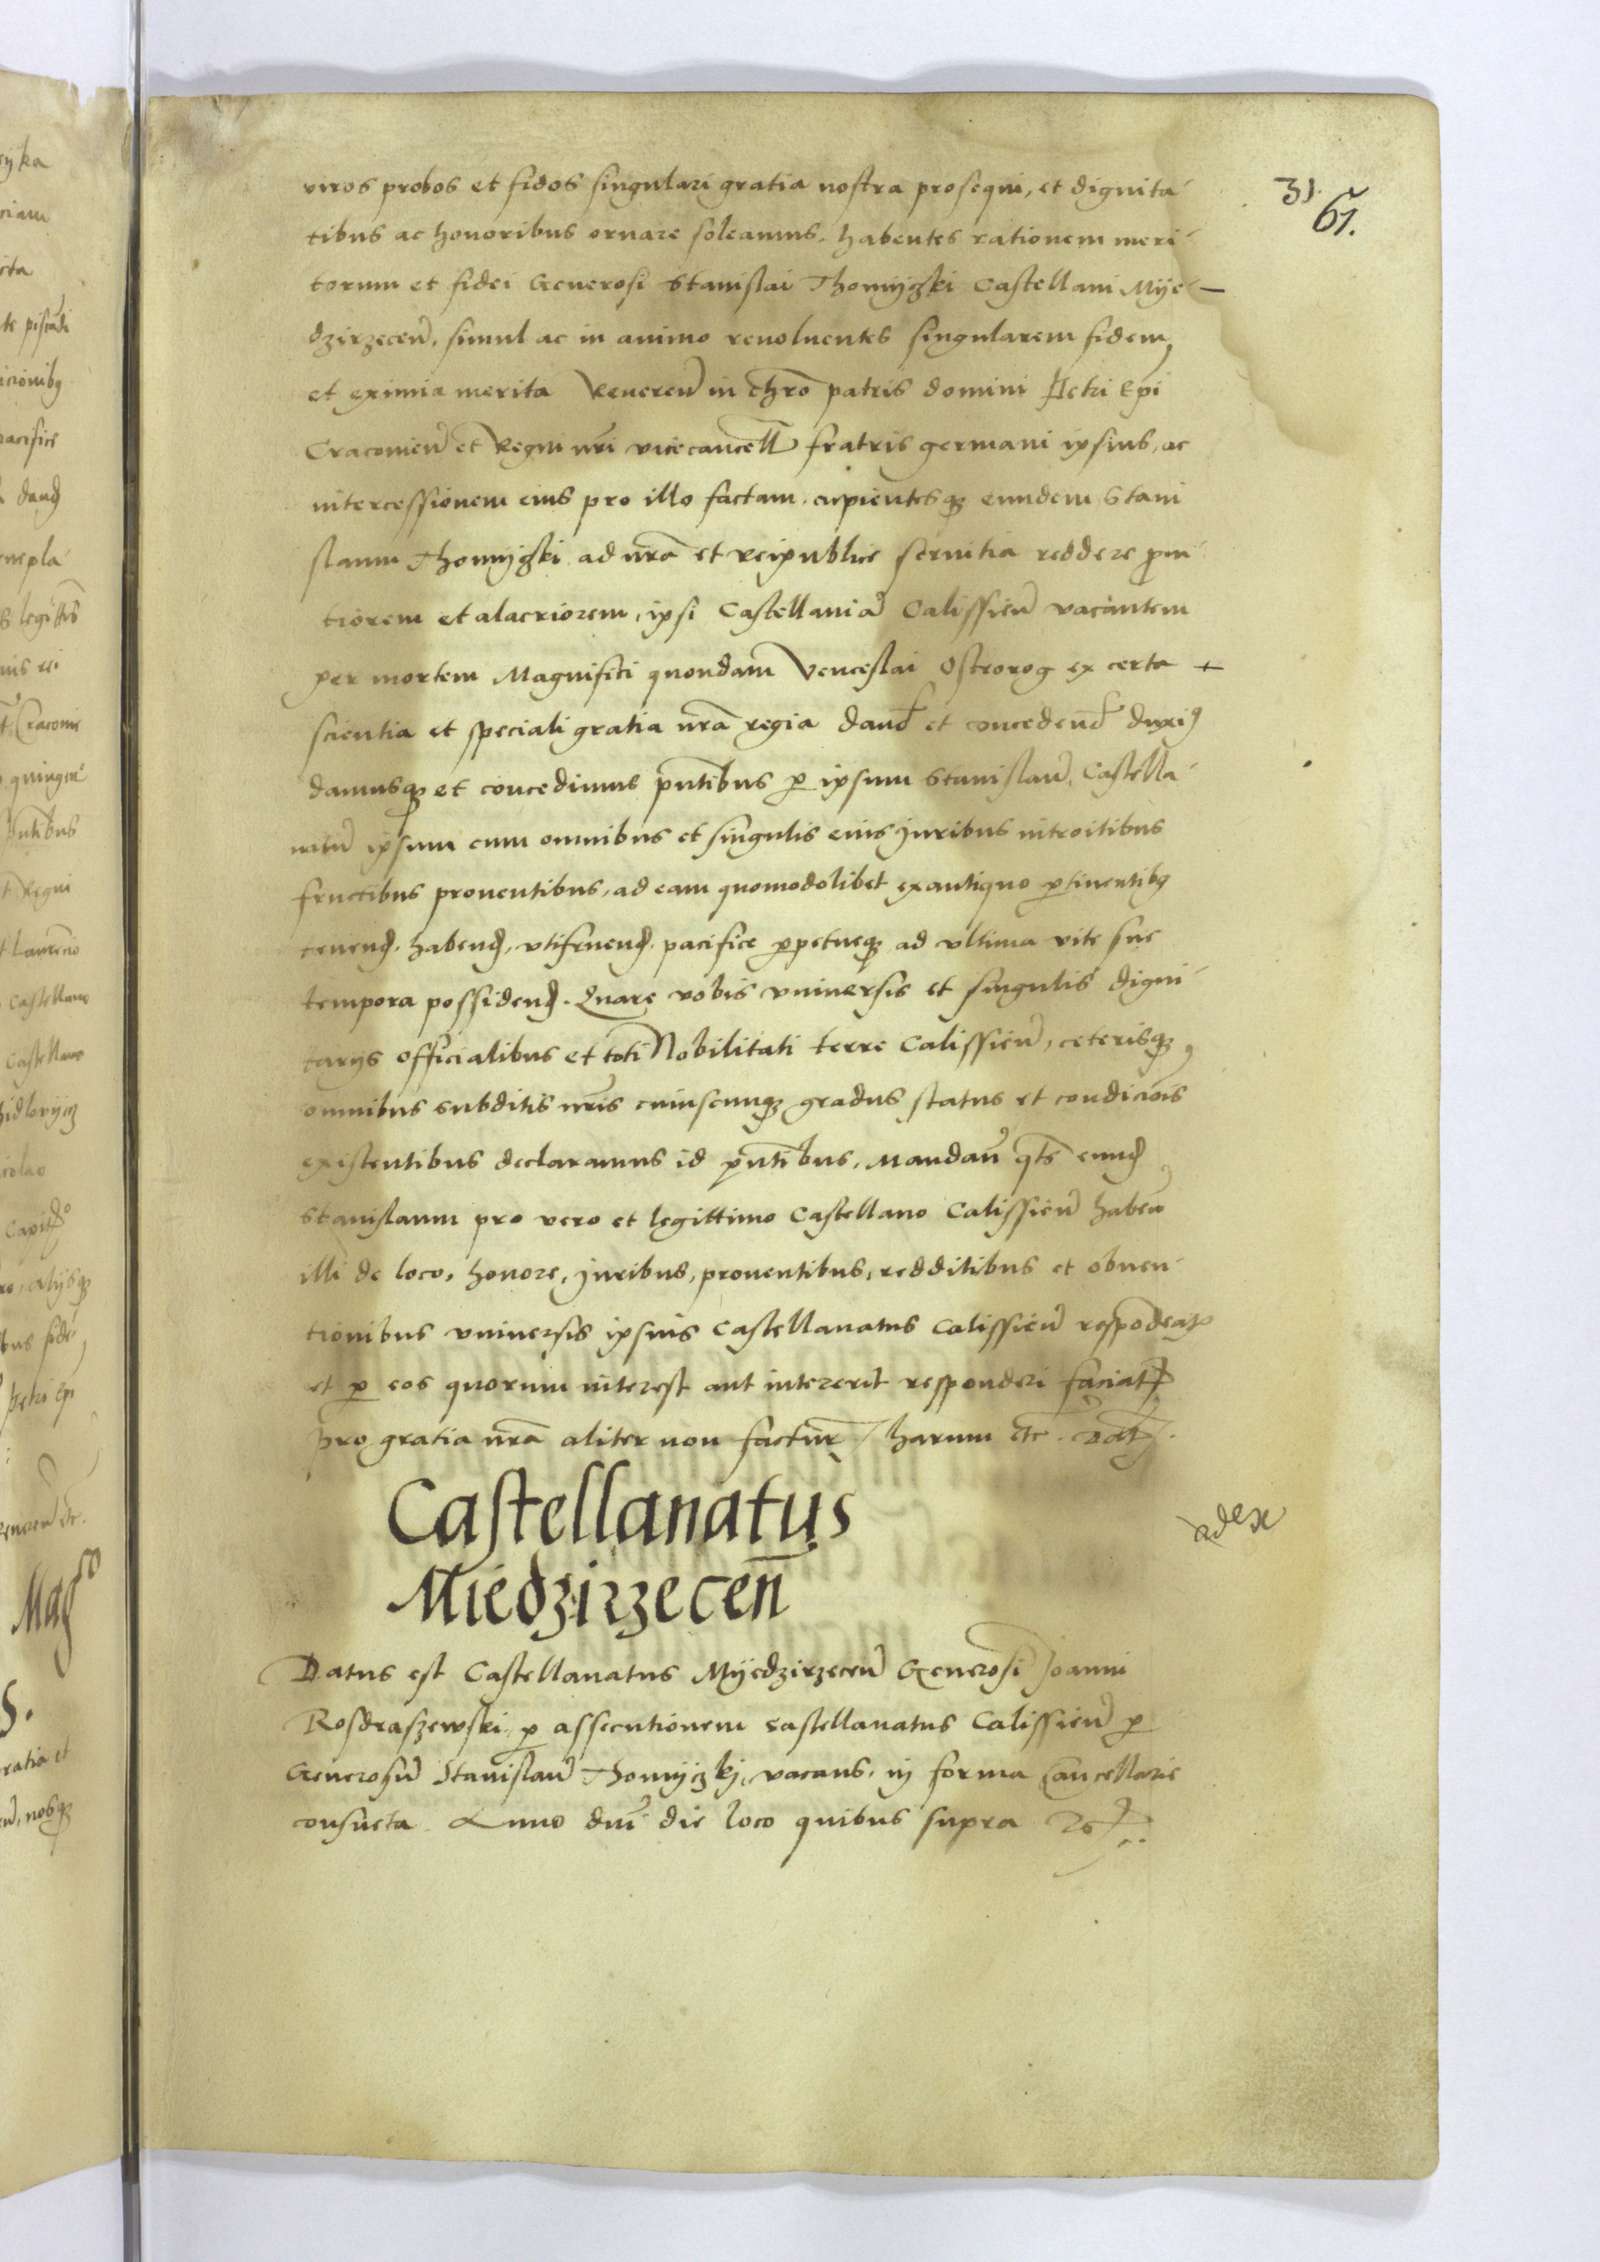 31.
61.
viros probos et fidos singulari gratia nostra prosequi, et dignita-
tibus ac honoribus ornare soleamus. habentes rationem meri-
torum et fidei Generosi Stanislai Thomyczki Castellani Myie-
dzirzecen̄, simul ac in animo revoluentes singularem fidem
et eximia merita Reveren̄ in chro patris domini Petri Epi
Cracovien̄ et Regni nri vicecancell fratris germani ipsius, ac
intercessionem eius pro illo factam. cupientesq; eundem Stani
slaum Thomyczki ad nrā et reipublice servitia reddere prom
tiorem et alacriorem, ipsi Castellaniā Calissien̄ vacantem
per mortem Magnifici quondam Venceslai Ostrorog ex certa +
scientia et speciali gratia nrā regia dand et concedend duxi9
damusq; et concedimus pntibus p ipsum Stanislaū, Castella-
natū ipsum cum omnibus et singulis eius juribus introitibus
fructibus proventibus, ad eam quomodolibet ex antiquo ptinentib9
tenend. habend, utifruend. pacifice ppetueq; ad ultima vite sue
tempora possidend. Quare vobis universis et singulis digni-
tarijs officialibus et toti Nobilitati terre Calissien̄, ceterisq;
omnibus subditis nris cuiuscunq; gradus status et condicōis
existentibus declaramus id pntibus, Mandan̄ qts eund
Stanislaum pro vero et legittimo Castellano Calissien̄ habeā
illi de loco, honore, juribus, proventibus, redditibus et obven-
tionibus universis ipsius Castellanatus Calissien̄ respōdeatis
et p eos quorum interest aut intererit responderi faciat
pro gratia nrā aliter non factur / harum etc. Dat.
Castellanatus
Miedzirzecen̄
Datus est Castellanatus Myedzirzecen̄ Generosi Joanni
Rosdraszewski p assecutionem castellanatus Calissien̄ p
Generosū Stanislaū Thomyczkj, vacans, in forma Cancellarie
consueta. Anno dni die loco quibus supra